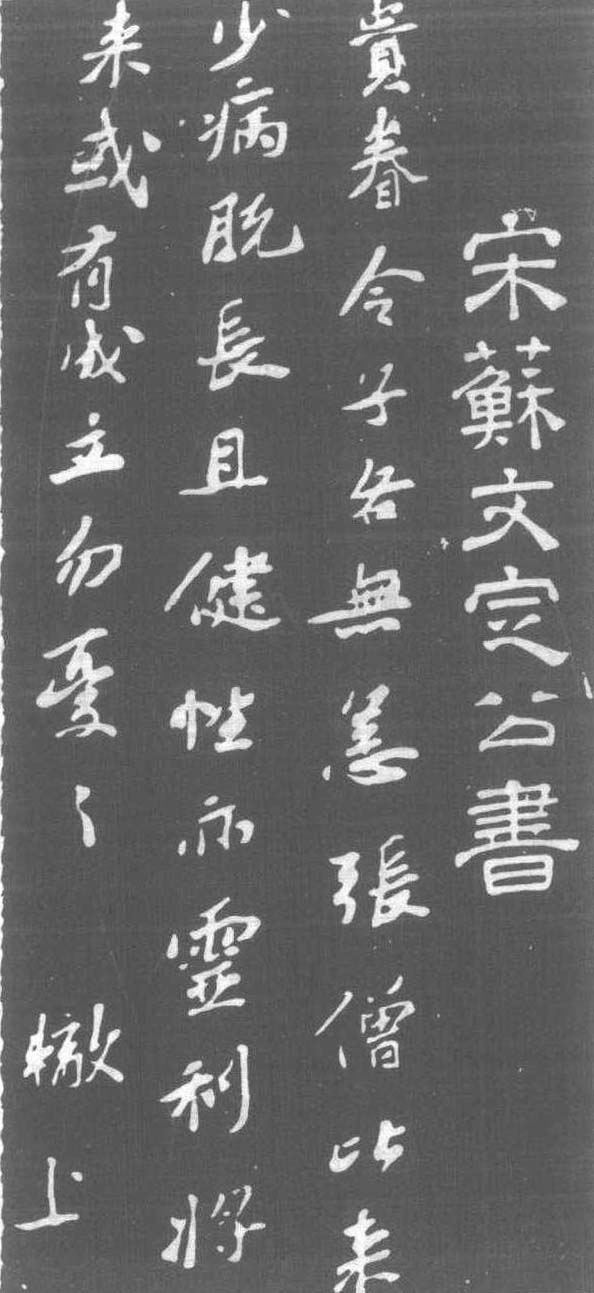 宋蘇文定公書
貴眷令子各無恙張僧比来
少病既長且健性亦靈利將
来或有成立勿憂〻　轍上